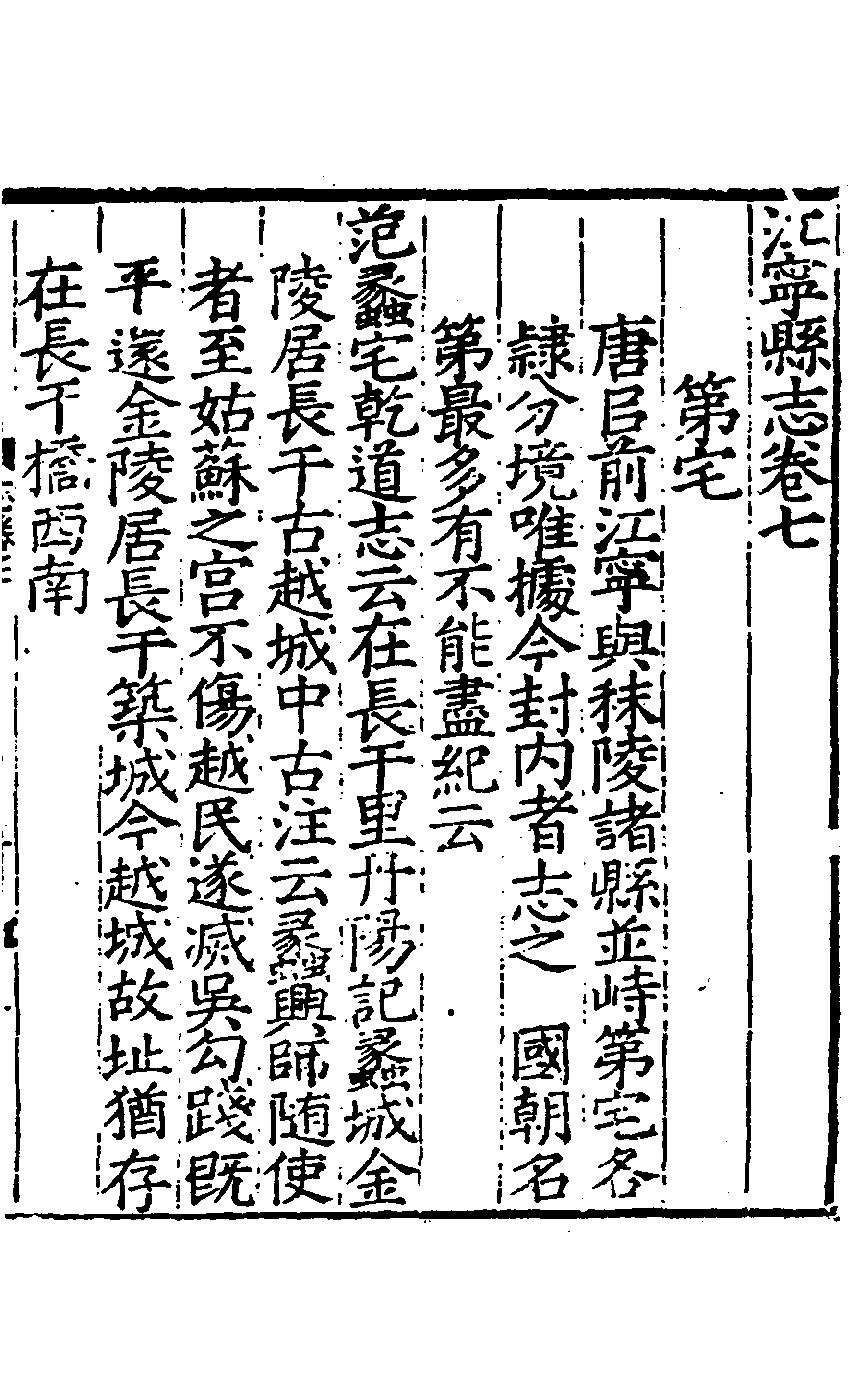 江寧縣志卷七
第宅
唐㠯前江寧與秣陵諸縣並峙第宅各
隸分境唯據今封内者志之　國朝名
第最多有不能盡紀云
范蠡宅乾道志云在長干里丹陽記蠡城金
陵居長干古越城中古注云蠡興師随使
者至姑蘇之宫不傷越民遂滅吳勾踐既
平遂金陵居長干築城今越城故址猶存
在長干橋西南